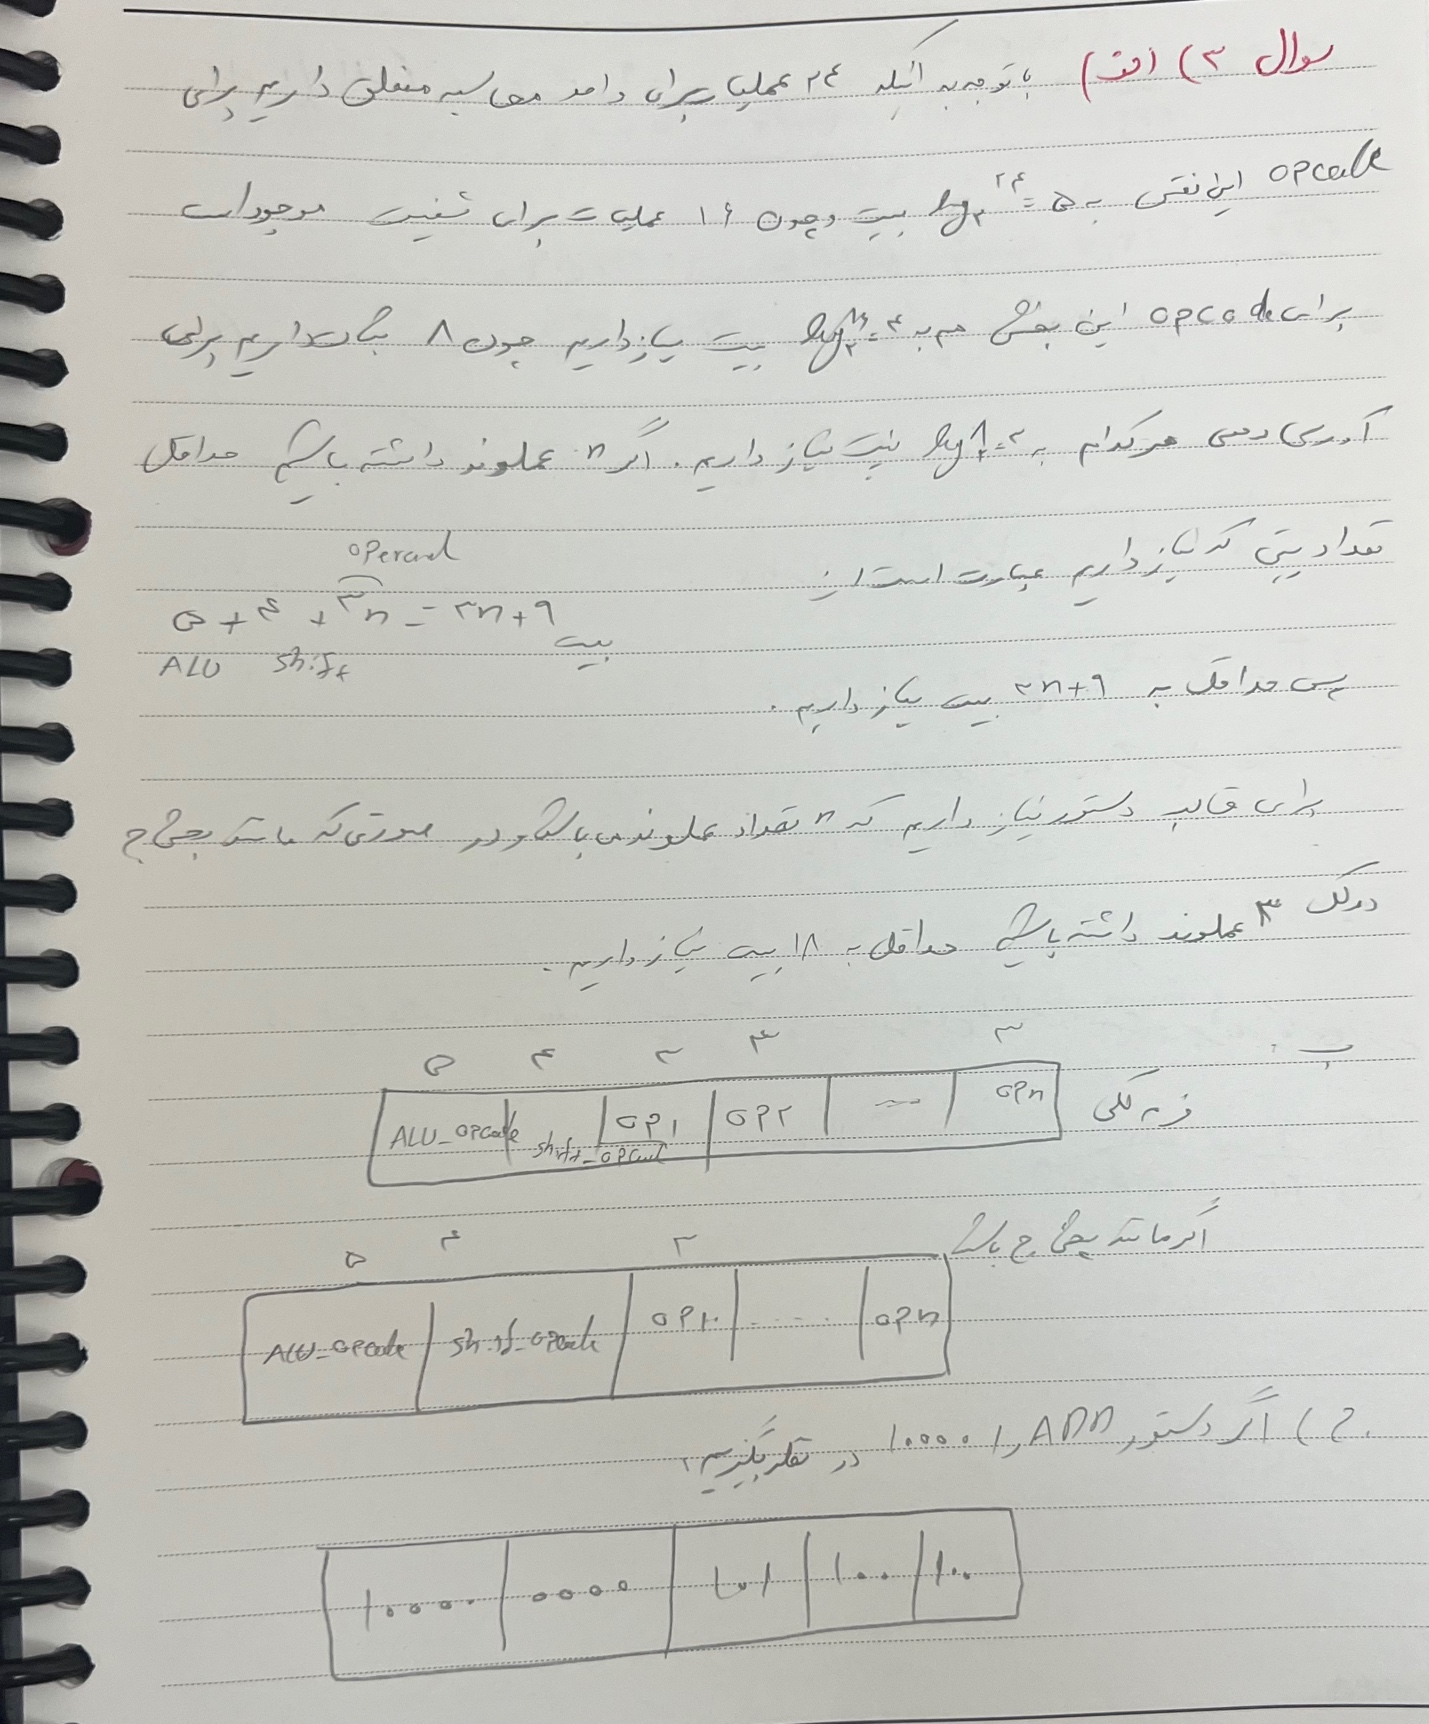 سوال ۳) الف) با توجه به اینکه ۲۴ عملیات برای واحد محاسبه منطق داریم برای
opcode این نقش به ۵ = log₂ ۲۴ بیت و چون ۱۶ عملیات برای شیفت موجود است
برای opcode این بخش هم به ۴ = log₂ ۱۶ بیت نیاز داریم چون ۸ ثبات داریم برای
آدرس دهی هر کدام به ۳ = log₂ ۸ بیت نیاز داریم. اگر n عملوند داشته باشیم حداقل
تعداد بیتی که نیاز داریم عبارت است از
operand
۵ + ۴ + ۳n = ۳n + ۹ بیت
ALU shift
پس حداقل به ۳n+۹ بیت نیاز داریم.
برای قالب دستور نیاز داریم که n تعداد عملوند می باشد و در صورتی که مانند بخش ج
در کل ۳ عملوند داشته باشیم حداقل به ۱۸ بیت نیاز داریم.
ب:
۵ ۴ ۳ ۳ ۳
ALU_opcode shift_opcode op۱ op۲ ... opn
اگر مانند بخش ج باشد
۵ ۴ ۳
ALU_opcode shift_opcode op۱ .... opn
ج) اگر دستور ADD را ۱۰۰۰۰ در نظر بگیریم:
۱۰۰۰۰ ۰۰۰۰ ۱۰۱ ۱۰۰ ۱۰۰